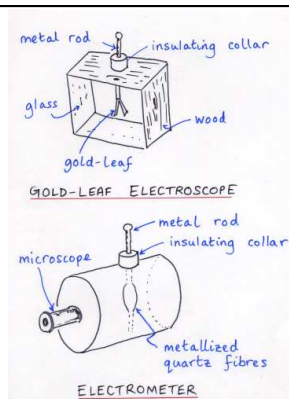 metal rod
insulating collar
glass
wood
gold-leaf
GOLD-LEAF ELECTROSCOPE
metal rod
insulating collar
microscope
metallized
quartz fibres
ELECTROMETER